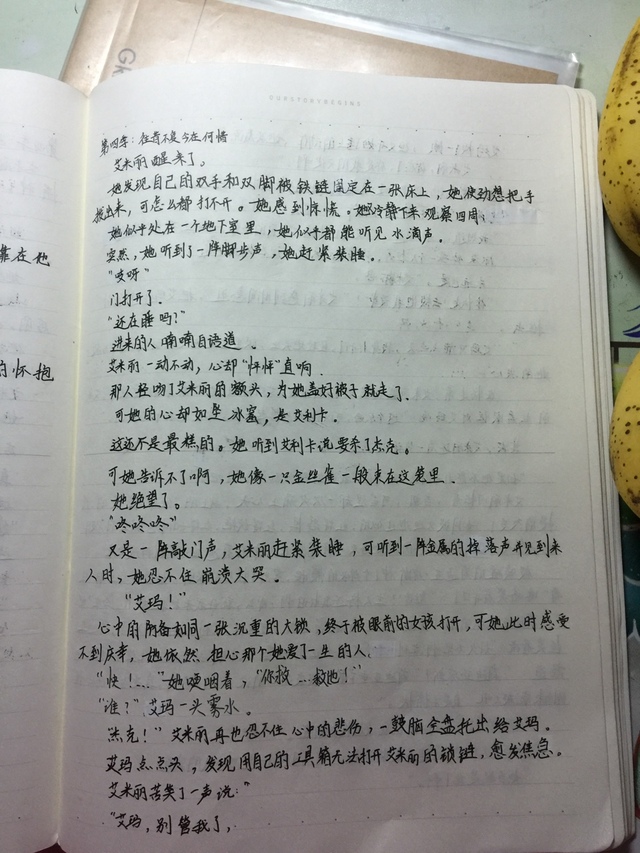 GK
靠在他
的怀抱
第四章：往昔不是今在何惜
艾米丽醒来了。
她发现自己的双手和双脚被铁链固定在一张床上，她使劲想把手
拔出来，可怎么都打不开。她感到惊慌。她冷静下来观察四周：
她似乎处在一个地下室里，她似乎都能听见水滴声。
突然，她听到了一阵脚步声，她赶紧装睡。
"吱呀"
门打开了。
"还在睡吗？"
进来的人喃喃自语道。
艾米丽一动不动，心却"怦怦"直响。
那人轻吻了艾米丽的额头，为她盖好被子就走了。
可她的心却如坠冰窖，是艾利卡。
这还不是最糕的。她听到艾利卡说要杀了杰克。
可她告诉不了啊，她像一只金丝雀一般束在这笼里．
她绝望了。
"咚咚咚"
又是一阵敲门声，艾米丽赶紧装睡，可听到一阵金属的掉落声并见到来
人时，她忍不住崩溃大哭。
"艾玛！"
心中的防备如同一张沉重的大锁，终于被眼前的女孩打开，可她此时感受
不到庆幸，她依然担心那个她爱了一生的人．
"快！…"她哽咽着，"你救…救他！"
"谁？"艾玛一头雾水。
"杰克！"艾米丽再也忍不住心中的悲伤，一鼓脑全盘托出给艾玛。
艾玛点点头，发现用自己的工具箱无法打开艾米丽的锁链，愈发焦急。
艾米丽苦笑了一声说："
"艾玛，别管我了，